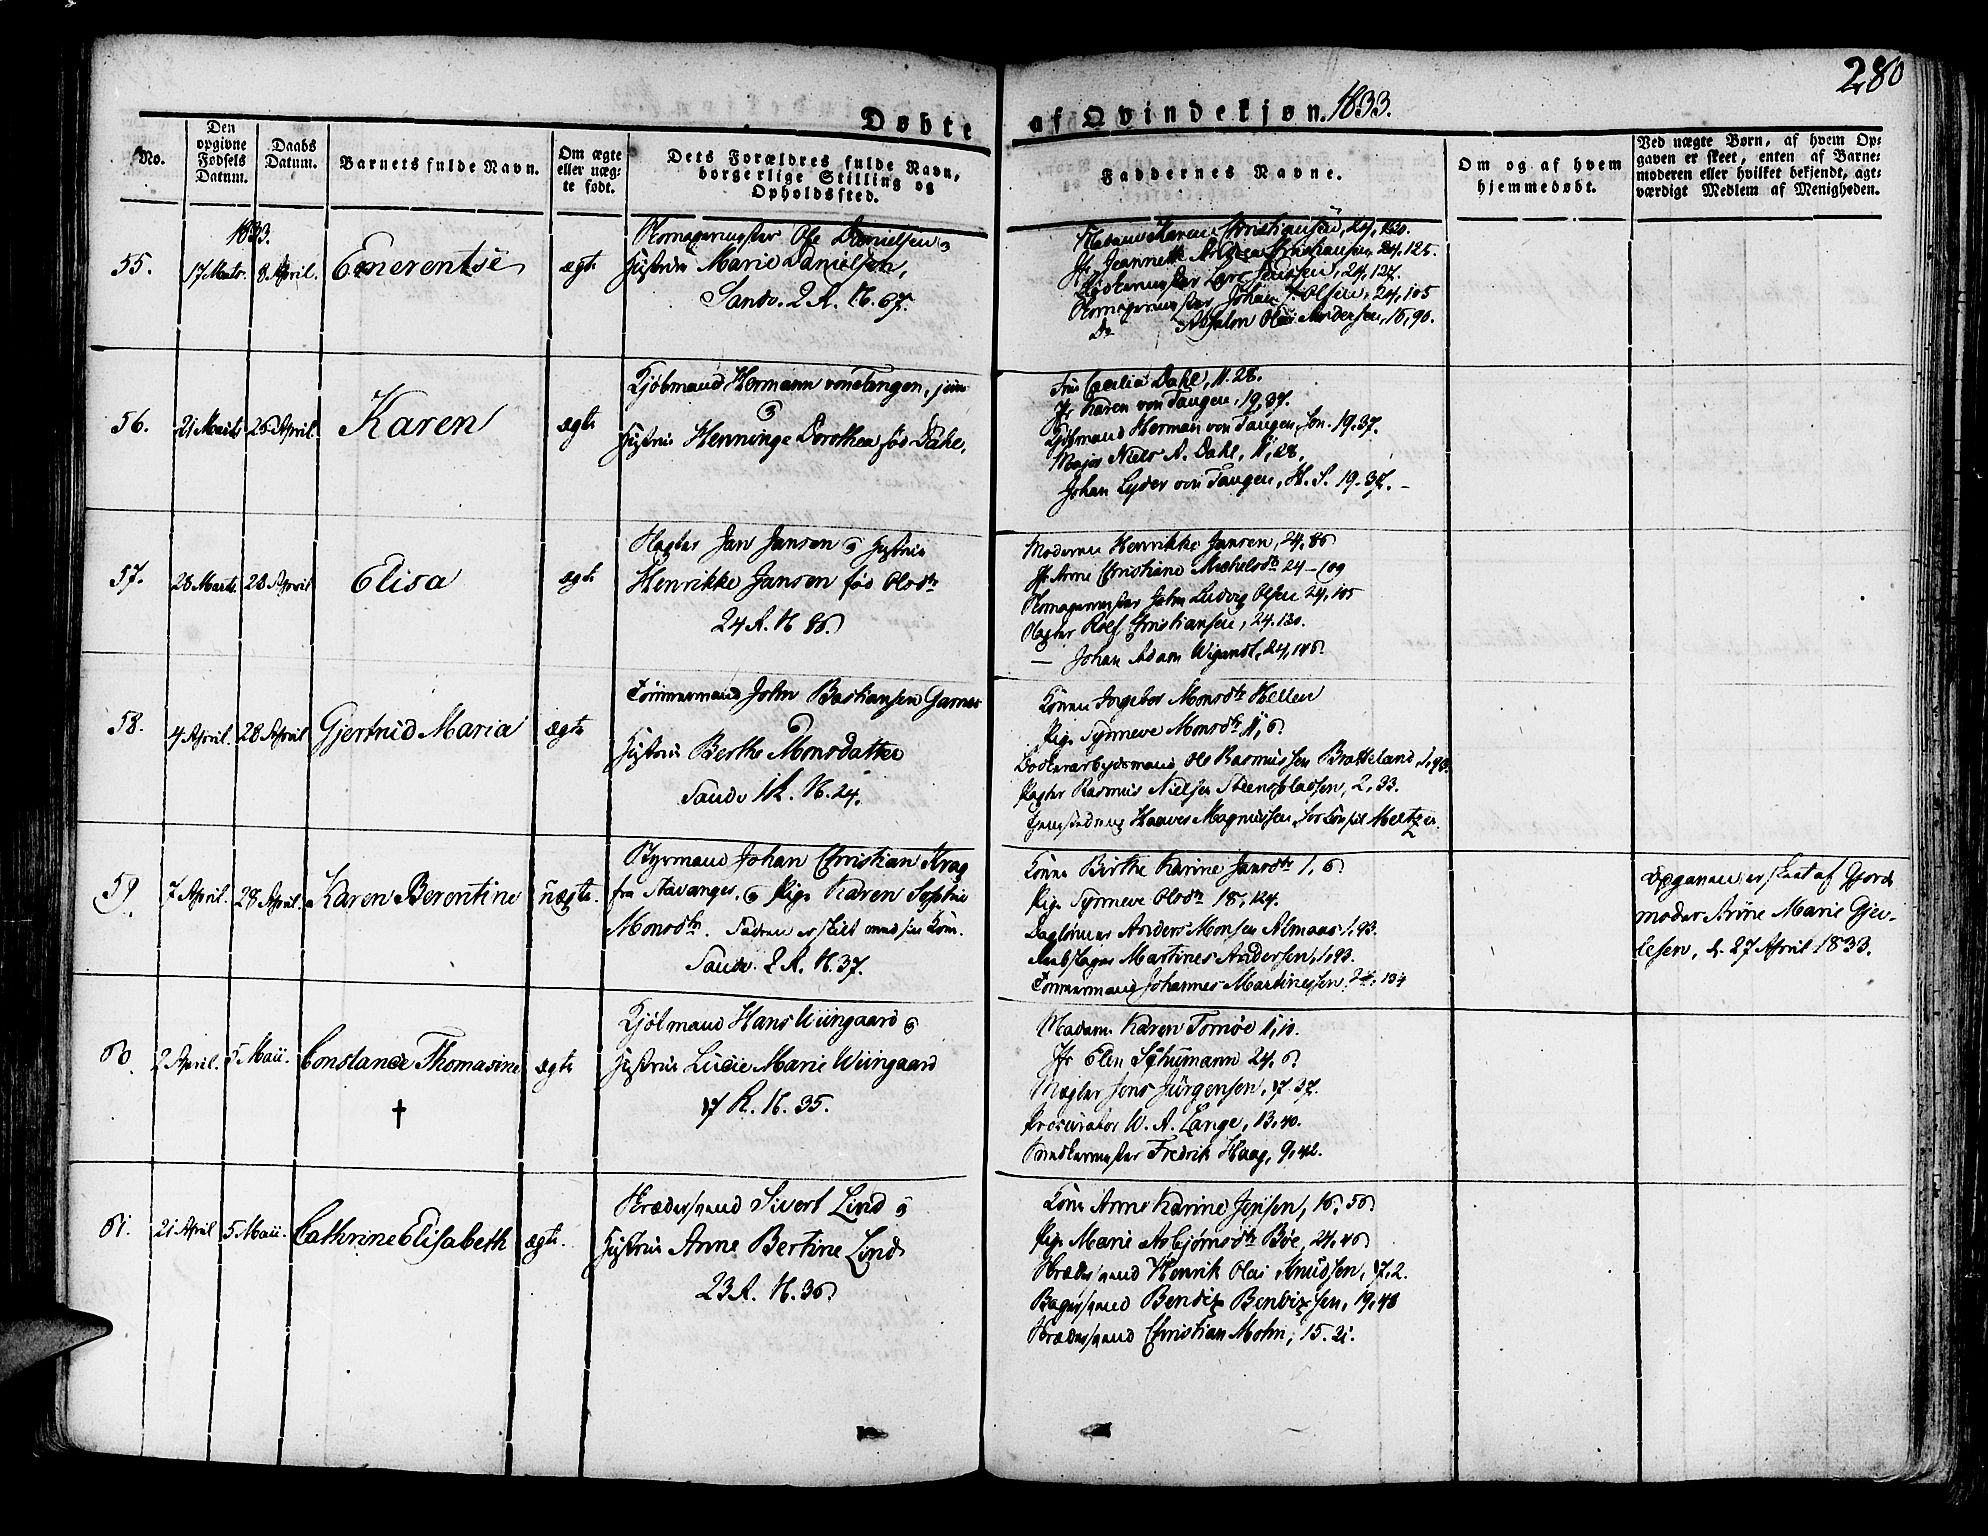 280
Døbte af Qvindekjøn. 1833.
No.
Den opgivne Fødsels Datum.
Daabs Datum.
Barnets fulde Navn.
Om ægte eller uægte født.
Dets Forældres fulde Navn, borgerlige Stilling og Opholdssted.
Faddernes Navne.
Om og af hvem hjemmedøbt.
Ved uægte Børn, af hvem Opgaven er skeet, enten af Barnemoderen eller hvilket bekjendt, agtværdigt Medlem af Menigheden.
1833.
55.
17 Marts.
8 April.
Emerentse
ægte
Skomagermester Ole Danielsen &
Hustrue Marie Danielsen,
Sandv. 2 R. N. 67.
Madame Karen Christiansen, 24, 130.
Jfr Jeannette Andrea Christiansen, 24, 125.
Bødkermester Lars Knudsen, 24, 127.
Skomagermester Johan L. Olsen, 24, 105
Do Absalon Olai Andersen, 16, 90.
56.
21 Marts
26 April.
Karen
ægte
Kjøbmand Hermann von Tangen, jun
&
Hustrue Henninge Dorothea fød Dahl.
Frue Cæcilia Dahl, 11. 28.
Jfr Karen von Tangen, 19, 37.
Kjøbmand Herman von Tangen, Sen. 19. 37.
Major Niels A. Dahl, 11, 28.
Johan Lyder von Tangen, H. S. 19. 37. –
57.
28 Marts.
28 April
Elisa
ægte
Slagter Jan Jansen & Hustrue
Henrikke Jansen fød Olsdtr
24 R. N 86.
Moderen Henrikke Jansen, 24, 86
Jfr Anne Christiane Michelsdtr 24–109
Skomagermester John Ludvig Olsen 24, 105
Slagter Rolf Christiansen, 24. 130.
— Johan Adam Wigandt, 24, 146.
58.
4 April.
28 April
Gjertrud Maria
ægte
Tømmermand John Bastiansen Garnes
&
Hustrue Berthe Monsdatter
Sandv 1 R. N. 24.
Konen Ingebor Monsdtr Hellen
Pige Synneve Monsdtr 11, 6
Bødkerarbeidsmand Ole Rasmussen Bratteland, 1, 93.
Slagter Rasmus Nielsen Steenspladsen, 2, 33.
Haaver Magnussen, for Consul Meltzer.
59.
7 April.
28 April.
Karen Berentine
uægte.
Styrmand Johan Christian Krag
fra Stavanger, & Pige Karen Sophie
Monsdtr. Faderen er skilt med sin Kone.
Sandv. 2 R. N. 37.
Kone Birthe Karine Jansdtr 1, 6
Pige Synneve Olsdtr 18, 124.
Daglønner Anders Monsen Almaas 1, 93.
Rebslager Martines Andersen, 1, 93.
Tømmermand Johannes Martinessen, 24, 104
Opgaven er skeet af Gjordemoder Anne Marie Gjertsen, d. 27 April 1833.
60.
2 April.
5 Maii.
Constance Thomasine
†
ægte
Kjøbmand Hans Wiingaard &
Hustrue Lucie Marie Wiingaard
17 R. N. 35.
Madame Karen Tornøe 11, 10.
Jfr Elen Schumann 24. 6.
Mægler Jens Jürgensen, 17. 37.
Procurator W. A. Lange, 13, 40.
Snedkermester Fredrik Haag, 9, 42.
61.
21 April
5 Maii.
Cathrine Elisabeth
ægte.
Skrædersvend Sivert Lind &
Hustrue Anne Bertine Lind
23 R. N. 36
Kone Anne Karine Jensen, 16, 56
Pige Marie Asbjørnsdtr Bøe, 24, 46
Skrædersvend Henrik Olai Knudsen, 17, 2.
Bagersvend Bendix Bendixsen, 19, 48
Skrædersvend Christian Mohn, 15. 21.